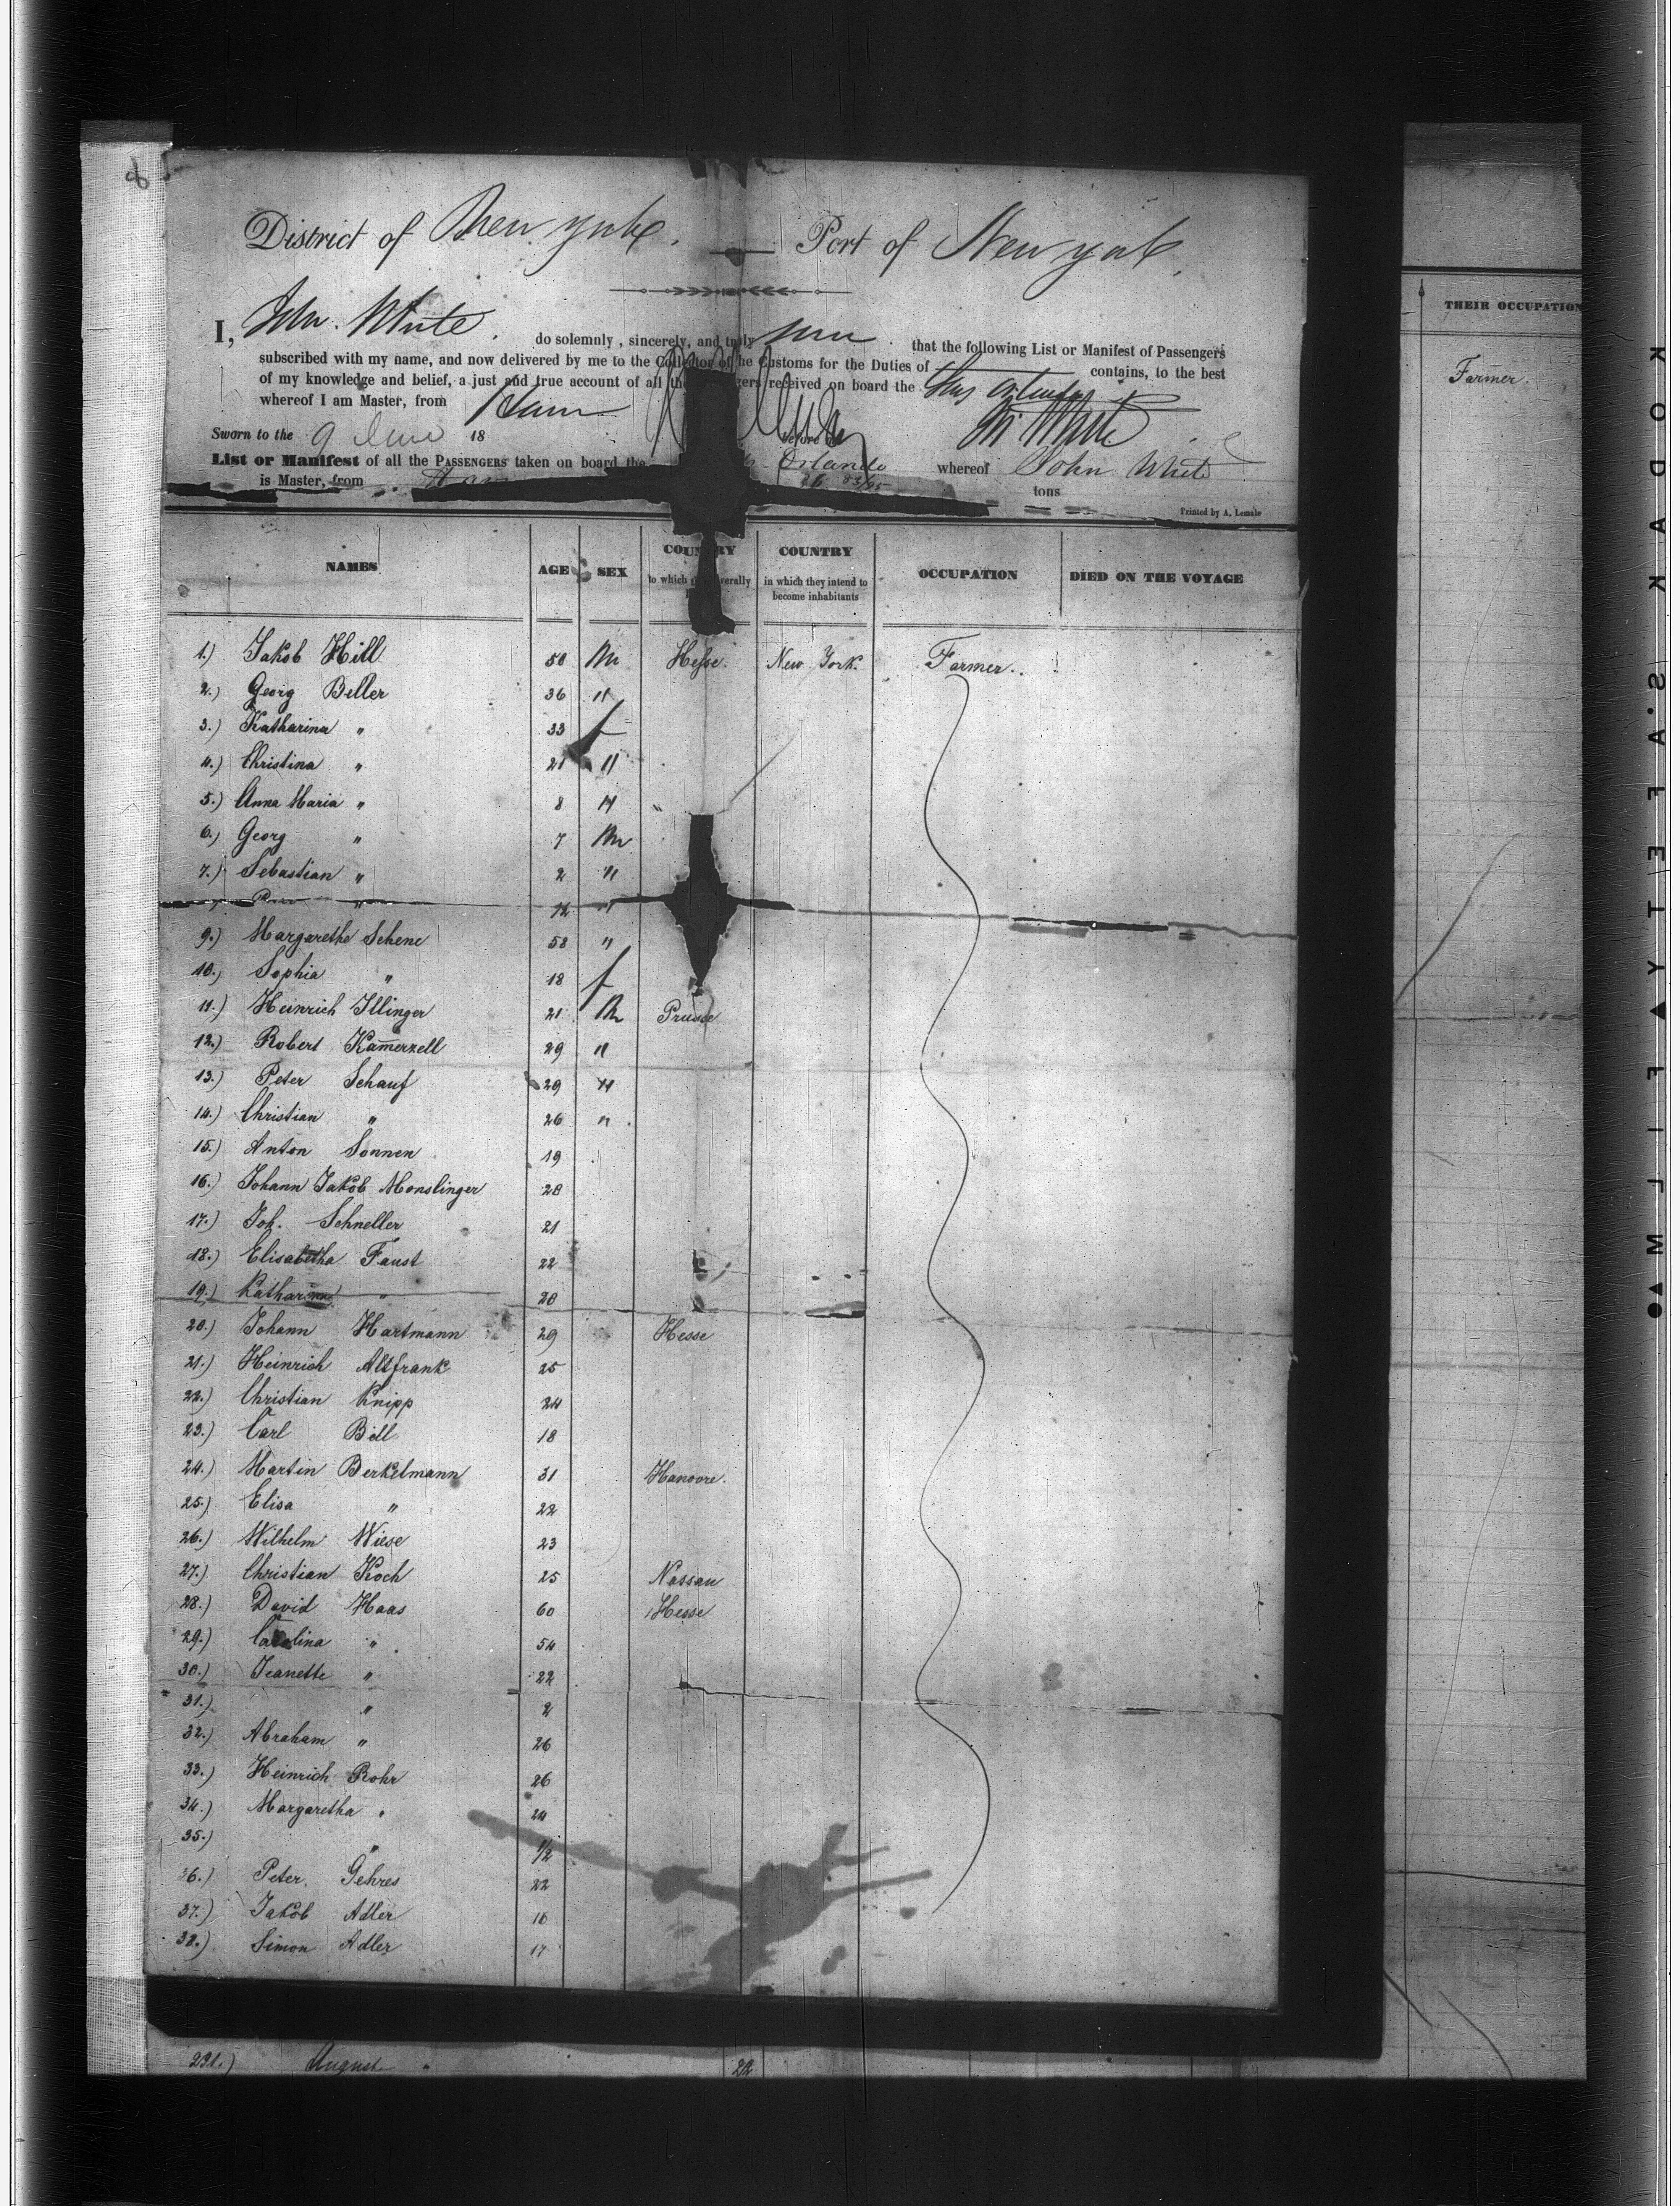 8
District of New York. Port of New York.
I, John White. do solemnly, sincerely, and truly that the following List or Manifest of Passengers
subscribed with my name, and now delivered by me to the Collector of the Customs for the Duties of contains, to the best
of my knowledge and belief, a just and true account of all the received on board the Ship Orlando
whereof I am Master, from Havre
Sworn to the 9 June 18 before J. White
List or Manifest of all the Passengers taken on board the Orlando whereof John White
is Master, from 83/95 tons
Printed by A. Lemale
NAMES AGE SEX COUNTRY COUNTRY OCCUPATION DIED ON THE VOYAGE
to which severally in which they intend to
become inhabitants
1.) Jakob Hill 50 M Hesse. New York. Farmer.
2.) Georg Beller 36 "
3.) Katharina " 33 f
4.) Christina " 21 "
5.) Anna Maria " 8 "
6.) Georg " 7 M
7.) Sebastian " 2 "
" 1/2 "
9.) Margarethe Schene 58 "
10.) Sophia " 18 f
11.) Heinrich Illinger 21 M Prusse
12.) Robert Kam̄erzell 29 "
13.) Peter Schauf 29 "
14.) Christian " 26 "
15.) Anton Sonnen 19
16.) Johann Jakob Monslinger 28
17.) Joh. Schneller 21
18.) Elisabetha Faust 22
19.) Katharina " 20
20.) Johann Hartmann 29 Hesse
21.) Heinrich Altfrank 25
22.) Christian Knipp 24
23.) Carl Bill 18
24.) Martin Berkelmann 31 Hanovre.
25.) Elisa " 22
26.) Wilhelm Wiese 23
27.) Christian Koch 25 Nassau
28.) David Haas 60 Hesse
29.) Carolina " 54
30.) Jeanette " 22
31.) " 2
32.) Abraham " 26
33.) Heinrich Rohr 26
34.) Margaretha " 24
35.) " 1/2
36.) Peter Gehres 22
37.) Jakob Adler 16
38.) Simon Adler 17
231.) August " 22
THEIR OCCUPATION
Farmer.
KODAK S.A.FETY FILM